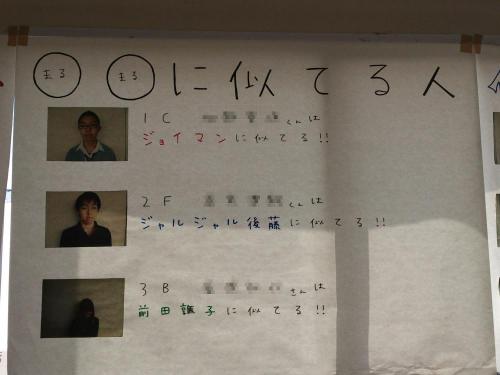 まる まる に似てる人
1C くんは
ジョイマンに似てる!!
2F くんは
ジャルジャル後藤に似てる!!
3B さんは
前田敦子に似てる!!